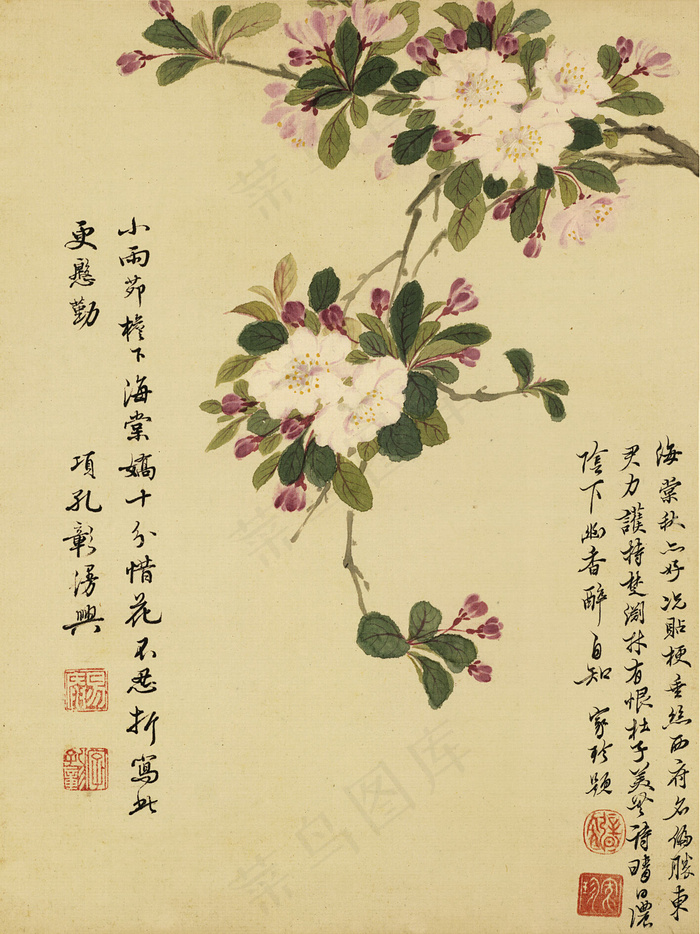 海棠秋亦好况贴梗垂丝西府名偏胜東
君力護持楚淵材有恨杜子美無詩晴日濃
陰下幽香醉自知 家珍題
小雨茆檐下海棠嬌十分惜花不忍折寫此
更慇勤
項孔彰漫興
菜鸟图库